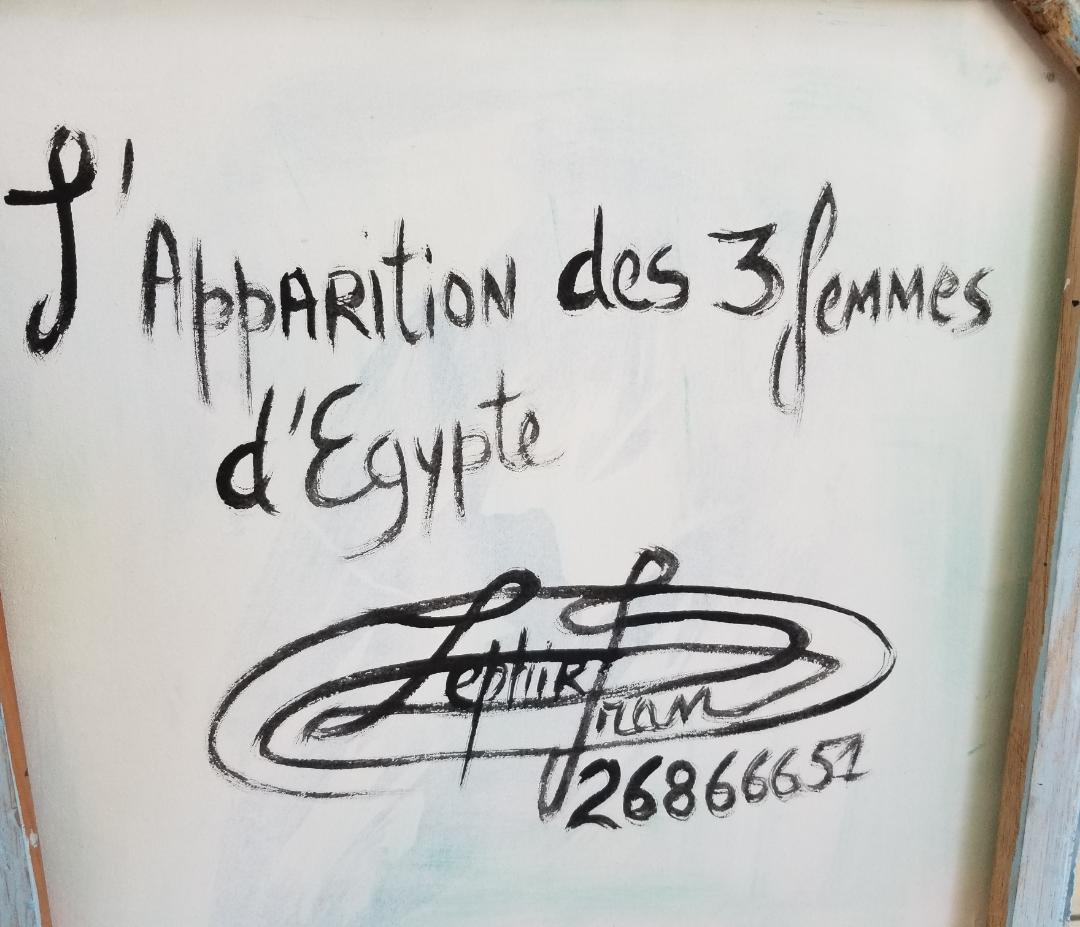 L'Apparition des 3 femmes
d'Egypte
Zephir
Fran
26866651